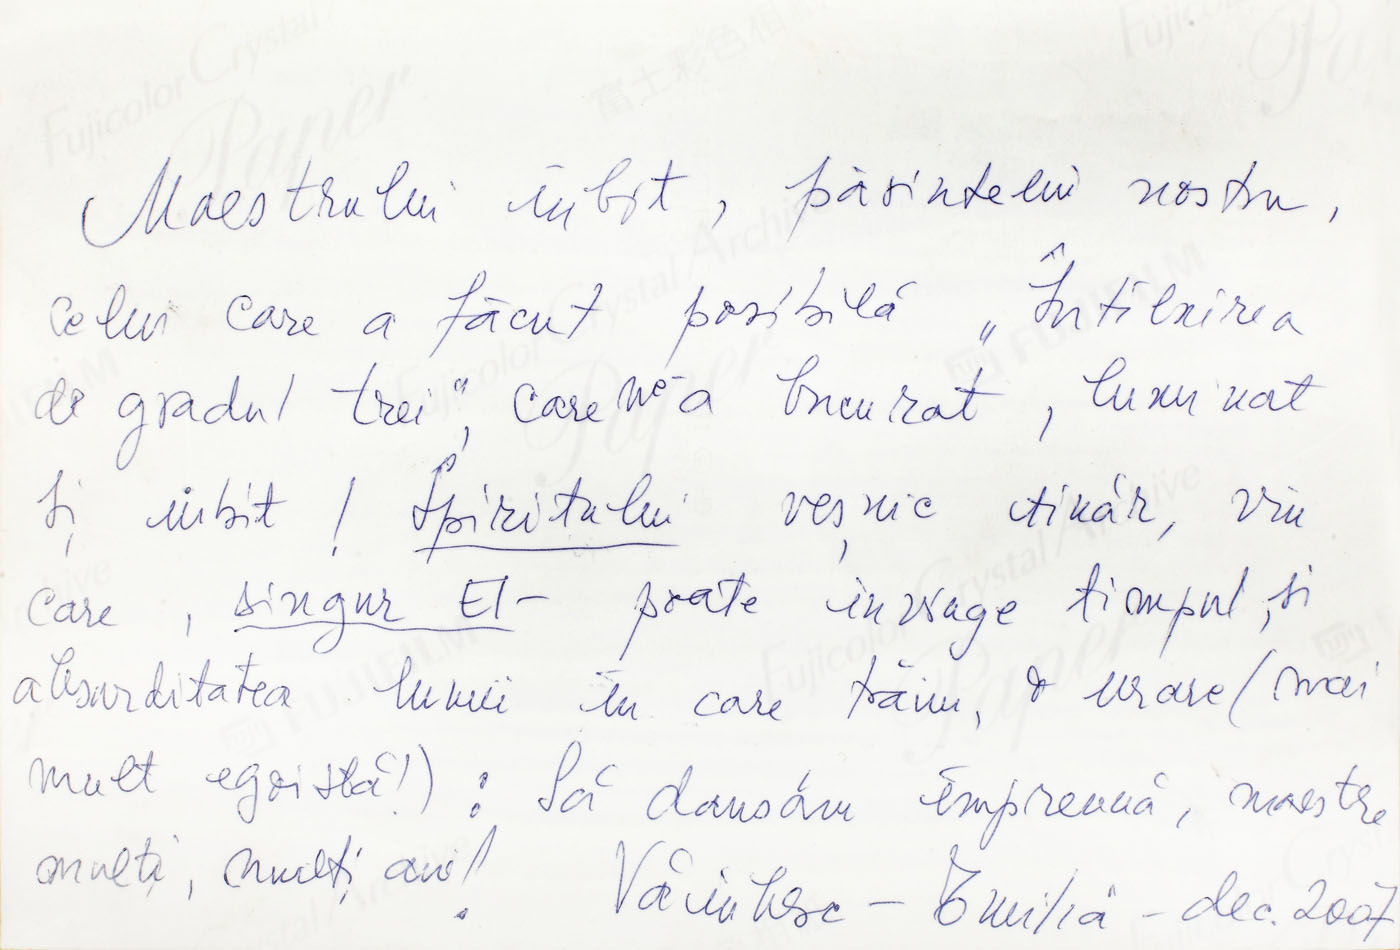 Maestrului iubit, părintelui nostru,
celui care a făcut posibilă „Întîlnirea
de gradul trei", care ne-a bucurat, luminat
și iubit! Spiritului veșnic tînăr, viu
care, singur El- poate învinge timpul și
absurditatea lumii în care trăim, o urare (mai
mult egoistă!): Să dansăm împreună, maestre
mulți, mulți ani!
Vă iubesc – Emilia – dec. 2007
Fujicolor Crystal Archive
Paper
FUJIFILM